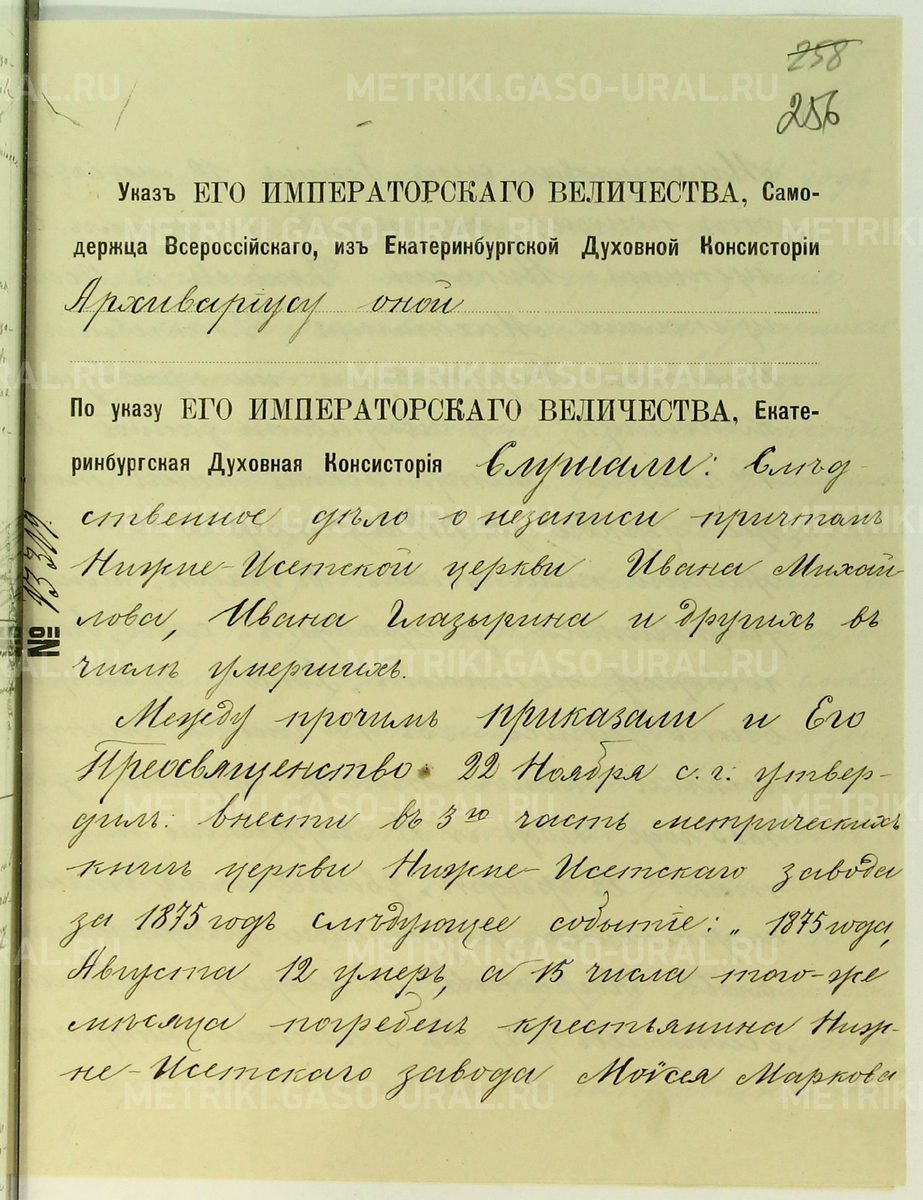 258
256
Указъ ЕГО ИМПЕРАТОРСКАГО ВЕЛИЧЕСТВА, Само-
держца Всероссійскаго, изъ Екатеринбургской Духовной Консисторіи
Архиваріусу оной
По указу ЕГО ИМПЕРАТОРСКАГО ВЕЛИЧЕСТВА, Екате-
ринбургская Духовная Консисторія Слушали: Слѣд-
ственное дѣло о незаписи причтомъ
Нижне-Исетской церкви Ивана Михай-
лова, Ивана Глазырина и другихъ въ
числѣ умершихъ.
Между прочимъ приказали и Его
Преосвященство 22 Ноября с. г. утвер-
дилъ: внести въ 3ю часть метрическихъ
книгъ церкви Нижне-Исетскаго завода
за 1875 годъ слѣдующее событіе: „1875 года,
Августа 12 умеръ, а 15 числа того-же
мѣсяца погребенъ крестьянина Ниж-
не-Исетскаго завода Моѵсея Маркова
№ 13319.
METRIKI.GASO-URAL.RU